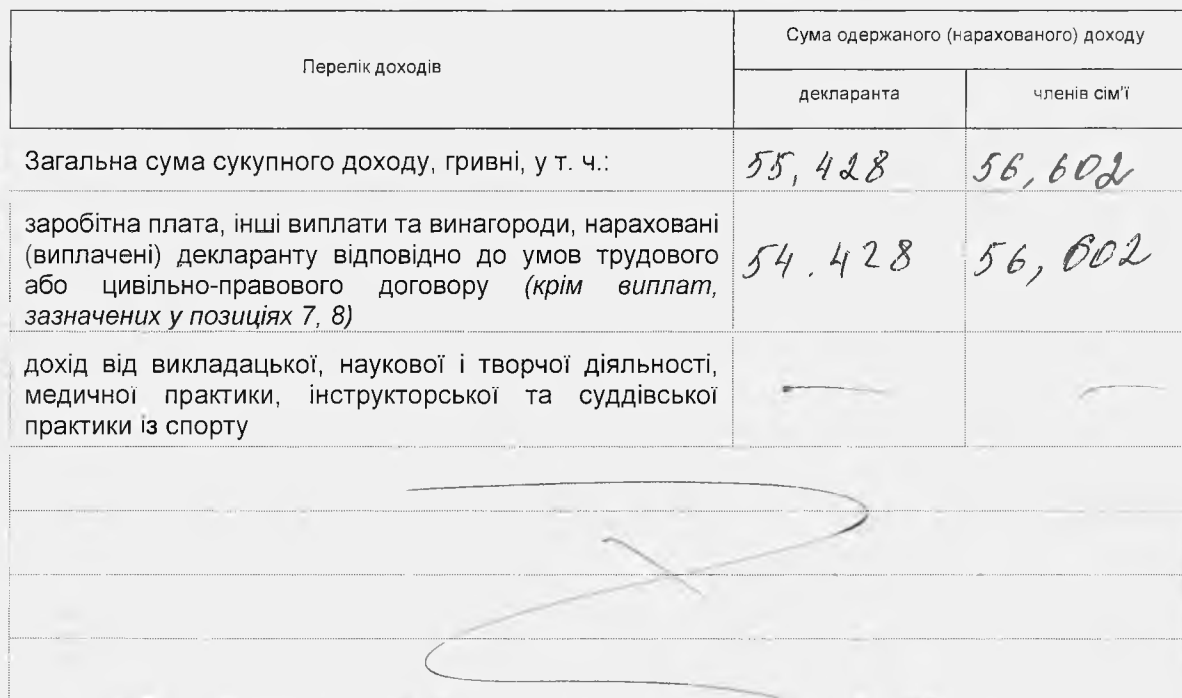 Перелік доходів
Сума одержаного (нарахованого) доходу
декларанта
членів сім'ї
Загальна сума сукупного доходу, гривні, у т. ч.:
55,428
56,602
заробітна плата, інші виплати та винагороди, нараховані
(виплачені) декларанту відповідно до умов трудового
або цивільно-правового договору (крім виплат,
зазначених у позиціях 7, 8)
54.428
56,602
дохід від викладацької, наукової і творчої діяльності,
медичної практики, інструкторської та суддівської
практики із спорту
—
—